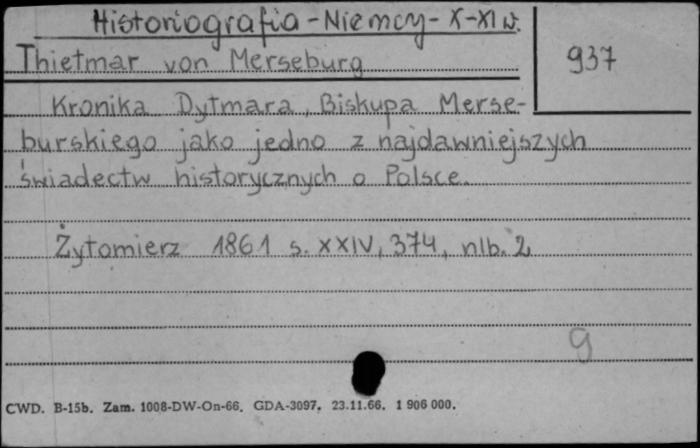 Historiografia - Niemcy - X-XI w.
Thietmar von Merseburg
937
Kronika Dytmara, Biskupa Merse-
burskiego jako jedno z najdawniejszych
świadectw historycznych o Polsce.
Żytomierz 1861 s. XXIV, 374, nlb. 2
g
CWD. B-15b. Zam. 1008-DW-On-66. GDA-3097. 23.11.66. 1 906 000.